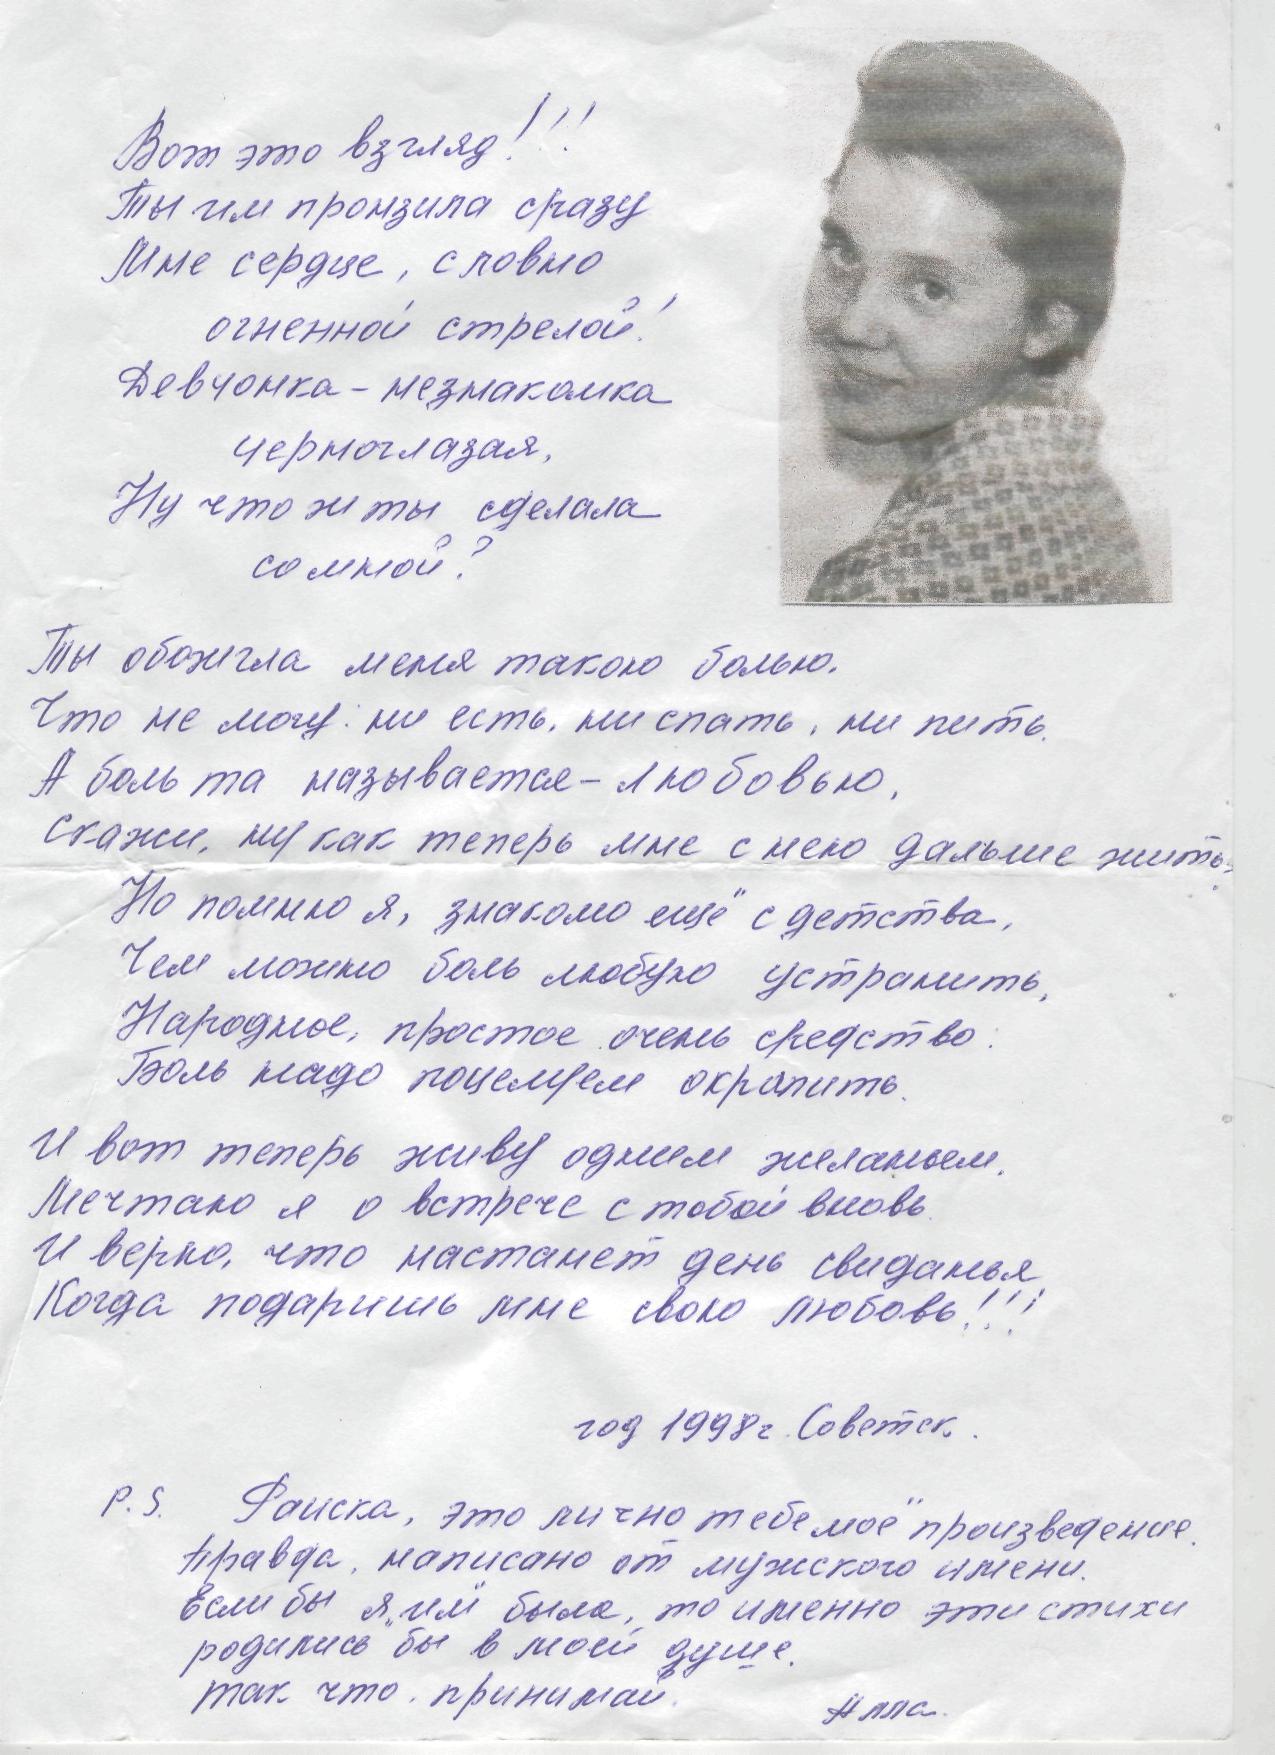 Вот это взгляд!!!
Ты им пронзила сразу
Мне сердце, словно
огненной стрелой!
Девчонка - незнакомка
черноглазая,
Ну что ж ты сделала
со мной?
Ты обожгла меня такою болью,
Что не могу: ни есть, ни спать, ни пить.
А боль та называется - любовью,
Скажи, ну как теперь мне с нею дальше жить?
Но помню я, знакомо ещё с детства,
Чем можно боль любую устранить,
Народное, простое очень средство:
Боль надо поцелуем окропить.
И вот теперь живу одним желаньем,
Мечтаю я о встрече с тобой вновь.
И верю, что настанет день свиданья
Когда подаришь мне свою любовь!!!
год 1998 г. Советск.
P.S. Раиска, это лично тебе моё "произведение.
Правда, написано от мужского имени.
Если бы я "им" была, то именно эти стихи
родились бы в моей душе.
Так что, принимай.
Алла.